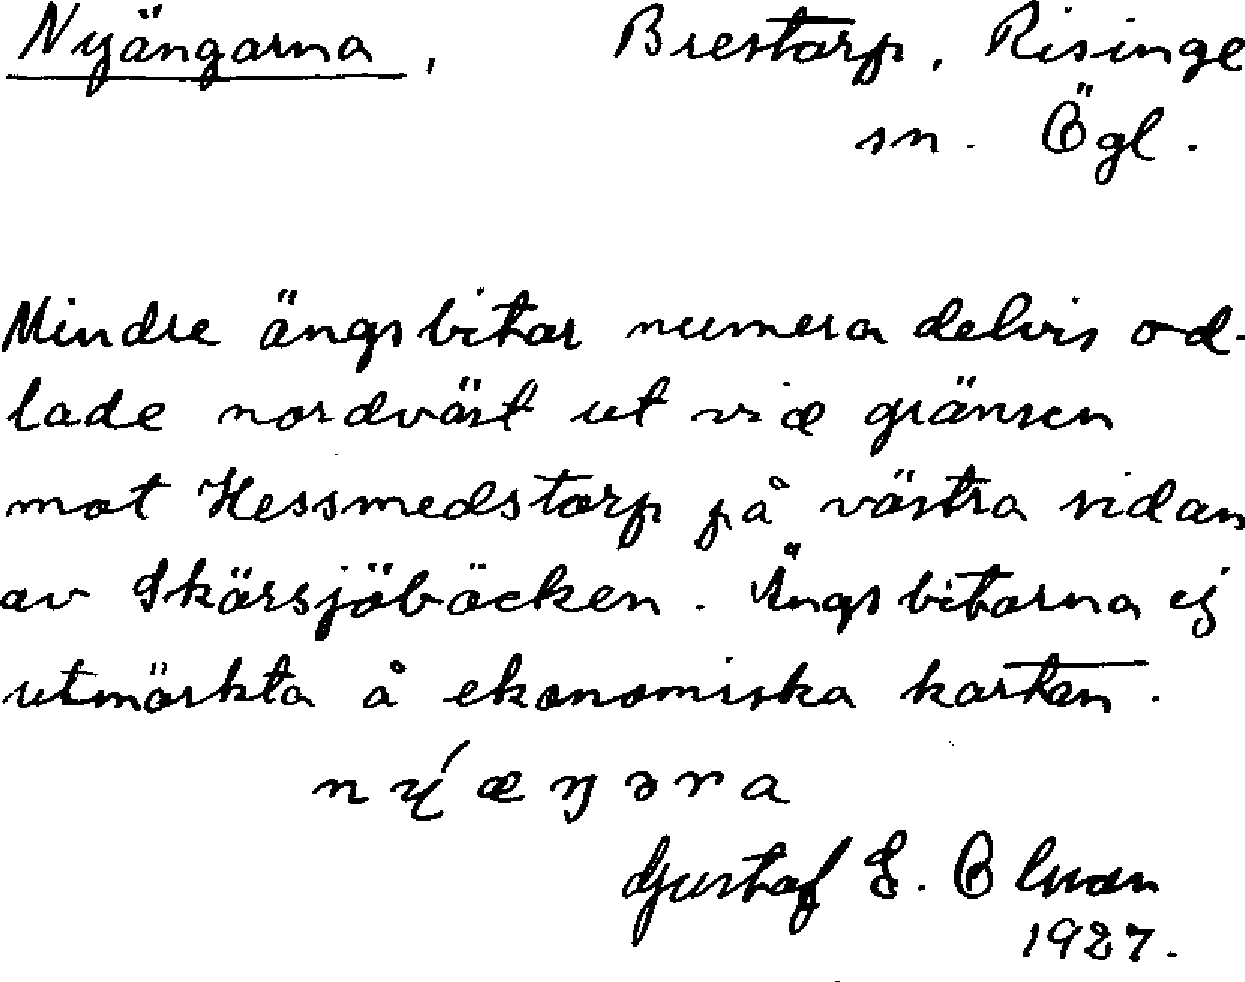 Nyängarna, Brestorp, Risinge
sn. Ögl.
Mindre ängsbitar numera delvis od-
lade nordväst ut vid gränsen
mot Hessmedstorp på västra sidan
av Skärsjöbäcken. Ängsbitarna ej
utmärkta å ekonomiska kartan.
ný́æŋəra
Gustaf E. Olsson
1927.